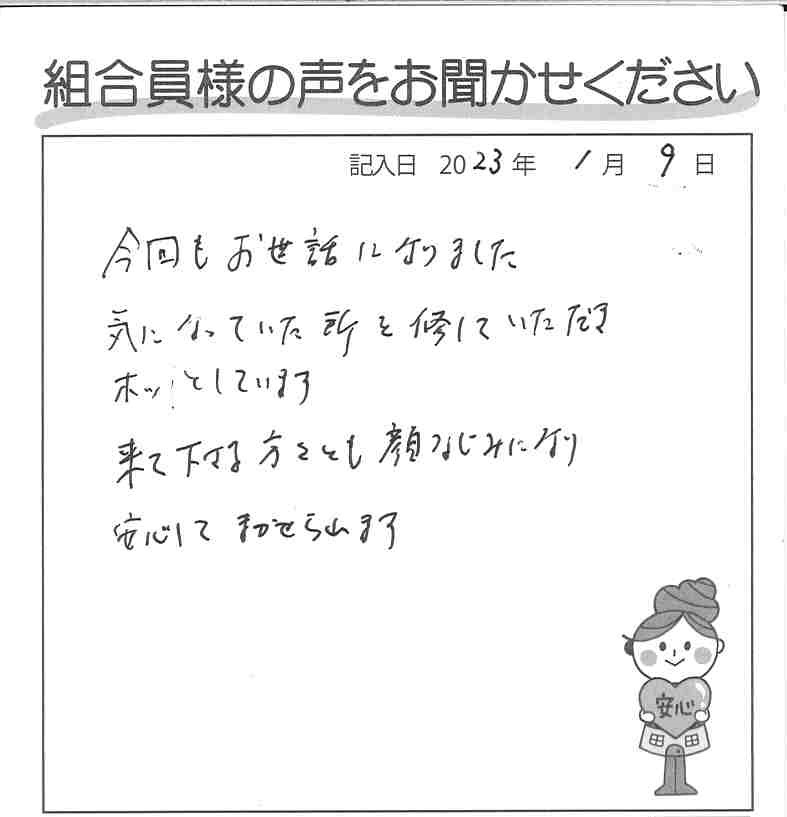 組合員様の声をお聞かせください
記入日 2023年 1月 9日
今回もお世話になりました
気になっていた所を修していただき
ホッとしています
来て下さる方々とも顔なじみになり
安心してまかせられます
安心